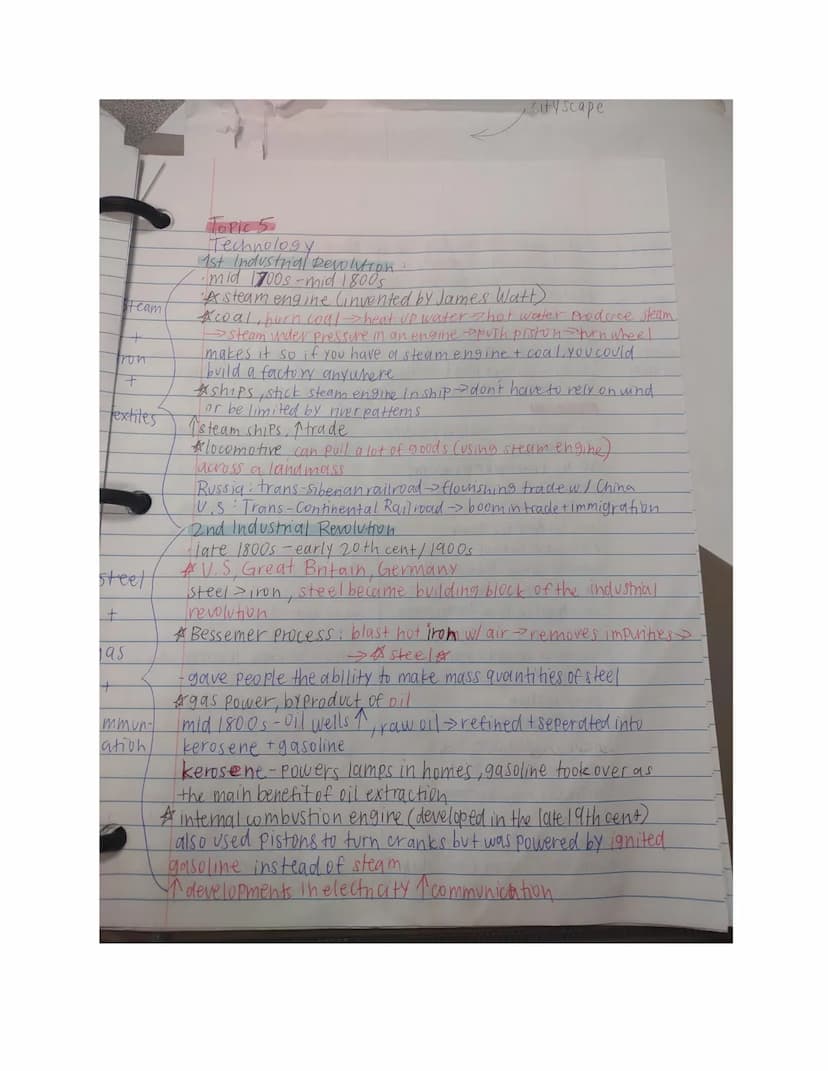 cityscape
Topic 5
Technology
1st Industrial Revolution:
·mid 1700s-mid 1800s
☆steam engine (invented by James Watt)
☆coal, burn coal→heat up water→hot water produce steam
→steam under pressure in an engine→push piston→turn wheel
makes it so if you have a steam engine + coal, you could
build a factory anywhere
☆ships, stick steam engine in ship→don't have to rely on wind
or be limited by river patterns
↑steam ships, ↑trade
☆locomotive, can pull a lot of goods (using steam engine)
across a landmass
Russia: trans-siberian railroad→flourishing trade w/ China
U.S: Trans-Continental Railroad→boom in trade + immigration
steam
+
iron
+
textiles
2nd Industrial Revolution
late 1800s-early 20th cent/1900s
☆U.S, Great Britain, Germany
steel > iron, steel became building block of the industrial
revolution
☆Bessemer Process: blast hot iron w/ air→removes impurities→
→☆steel☆
-gave people the ability to make mass quantities of steel
☆gas power, byproduct of oil
mid 1800s-oil wells↑, raw oil→refined + seperated into
kerosene + gasoline
kerosene-powers lamps in homes, gasoline took over as
the main benefit of oil extraction
☆internal combustion engine (developed in the late 19th cent)
also used pistons to turn cranks but was powered by ignited
gasoline instead of steam
↑developments in electricity ↑communication
steel
+
gas
+
mmun-
ation